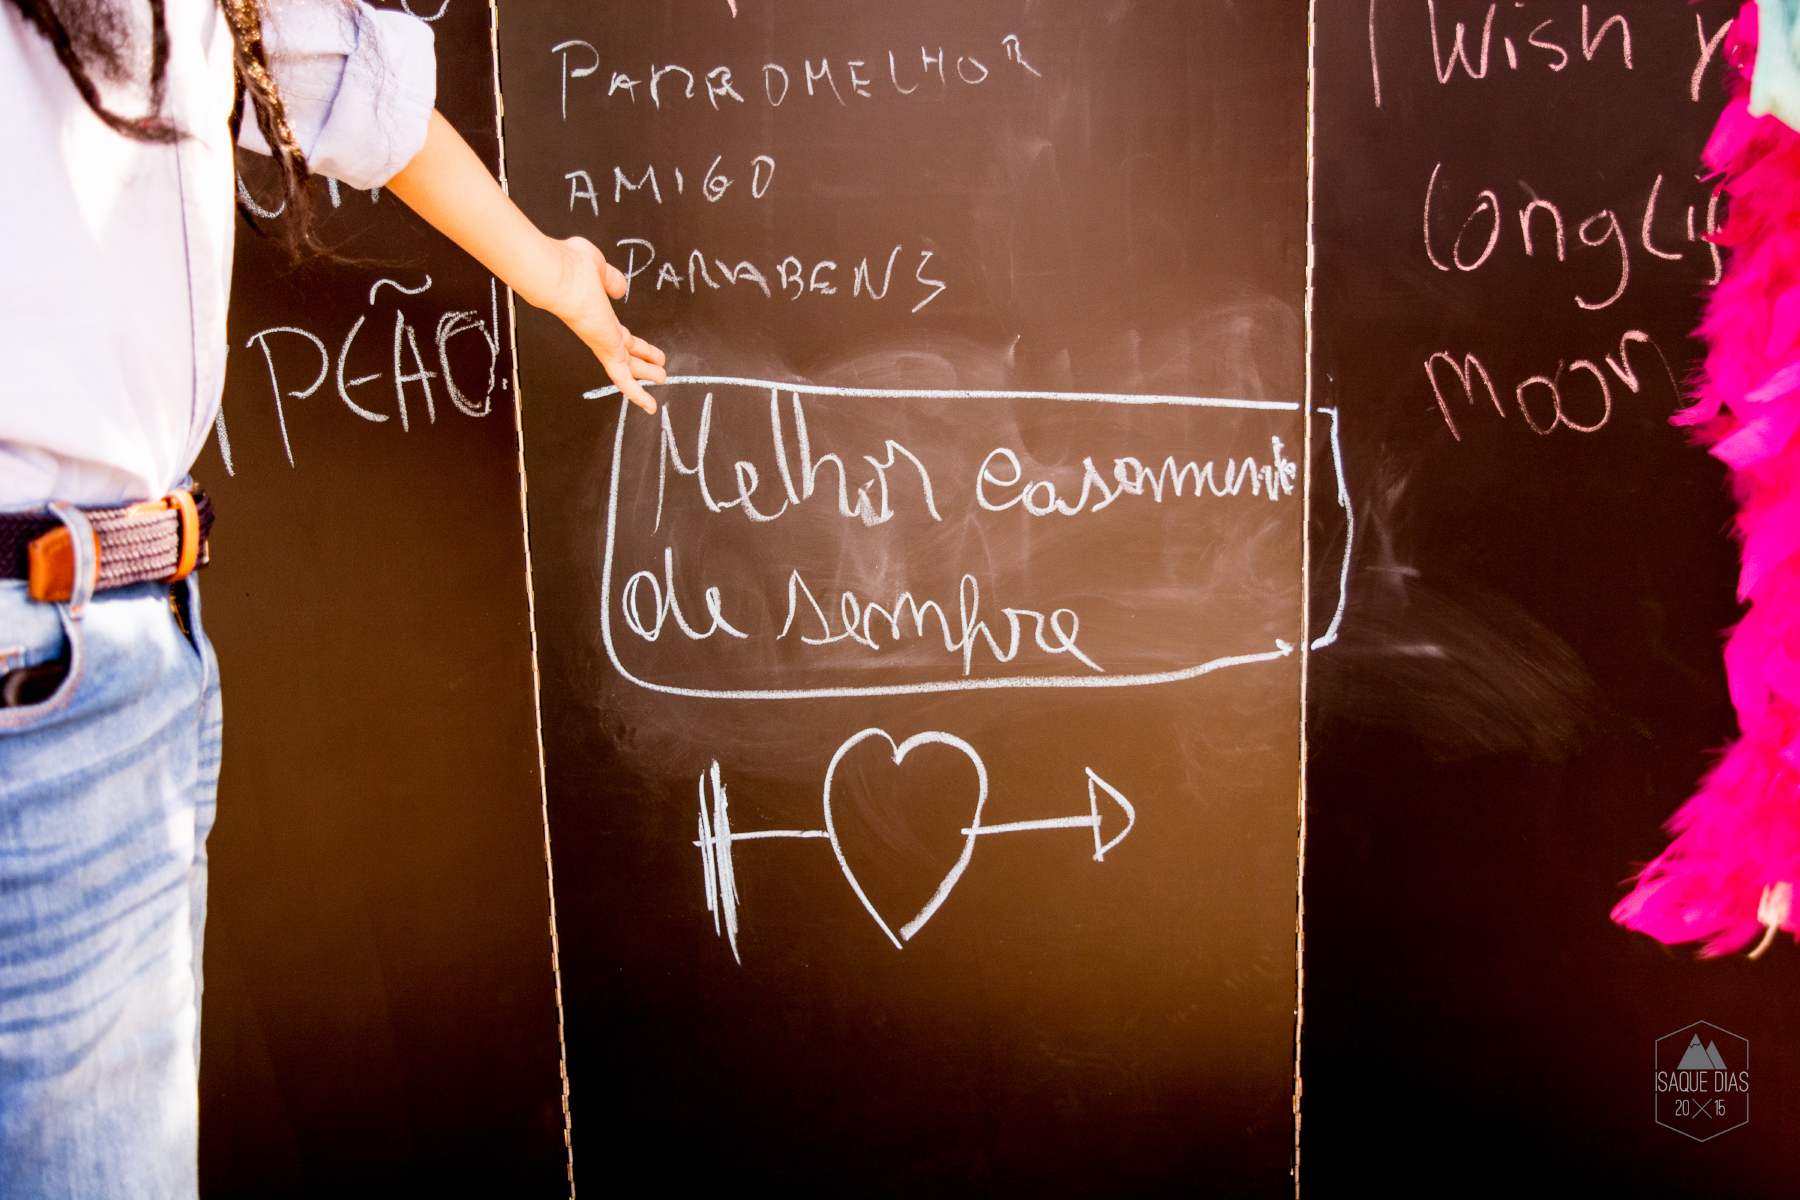 PEÃO
PARA O MELHOR
AMIGO
PARABENS
Melhor casamento
de sempre
I wish
long
moon
ISAQUE DIAS
20 15